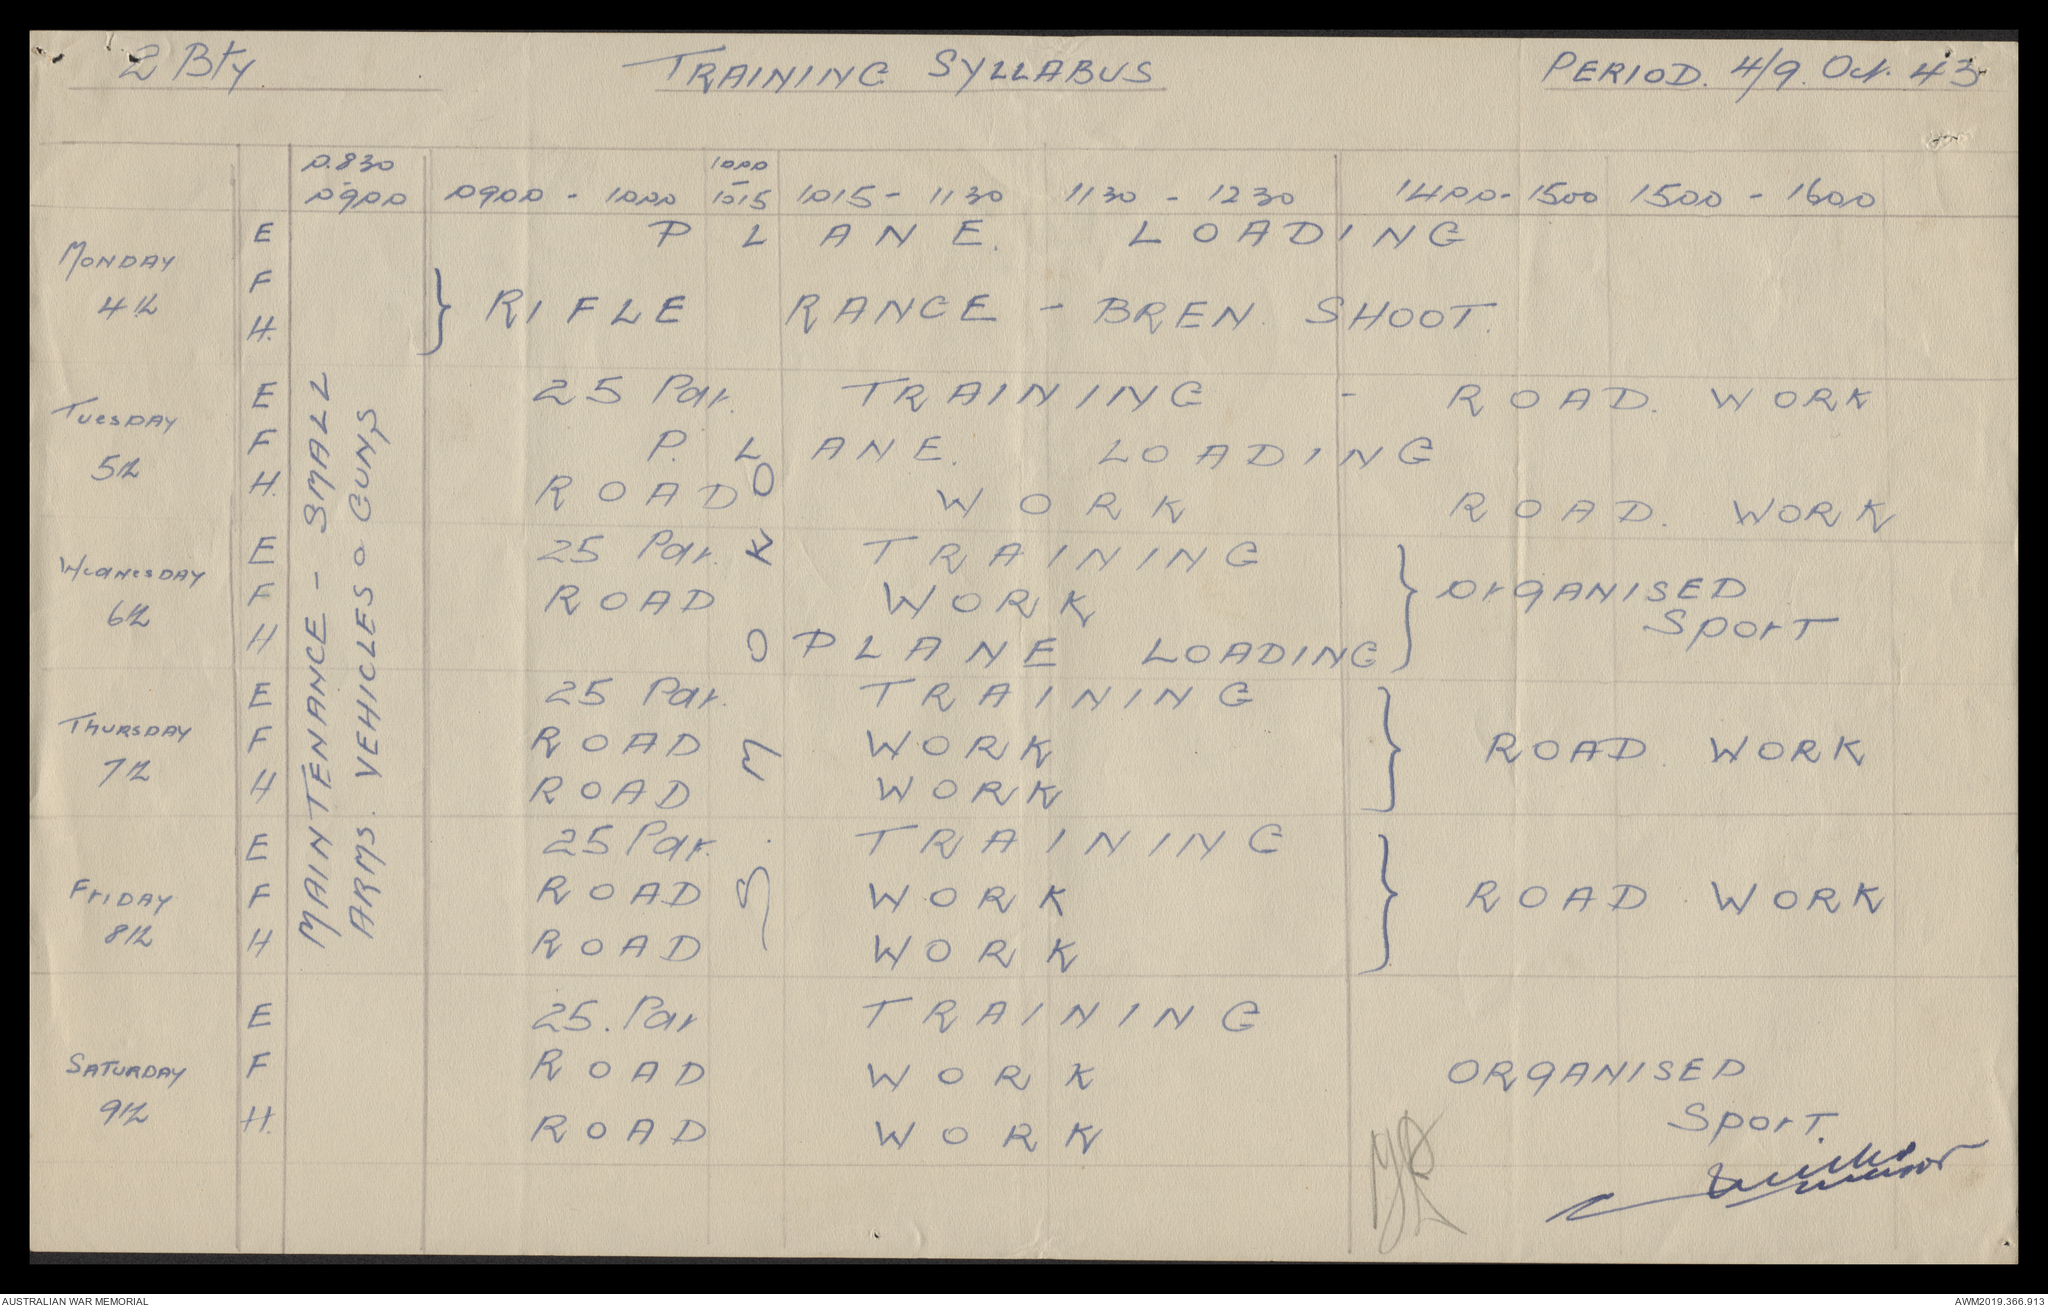 2 Bty. TRAINING SYLLABUS PERIOD. 4/9. Oct. 43
0.830 - 0900 0900 - 1000 1000 - 1015 1015 - 1130 1130 - 1230 1400 - 1500 1500 - 1600
MAINTENANCE - SMALL
ARMS. VEHICLES & GUNS
SMOKO
MONDAY 4th
E PLANE. LOADING
F
H. } RIFLE RANGE - BREN. SHOOT.
TUESDAY 5th
E 25 Par. TRAINING - ROAD. WORK
F P.LANE. LOADING
H. ROAD WORK ROAD. WORK
WEDNESDAY 6th
E 25 Par. TRAINING
F ROAD WORK } ORGANISED
SPORT
H PLANE LOADING
THURSDAY 7th
E 25 Par. TRAINING
F ROAD WORK } ROAD. WORK
H ROAD WORK
FRIDAY 8th
E 25 Par. TRAINING
F ROAD WORK } ROAD. WORK
H ROAD WORK
SATURDAY 9th
E 25. Par TRAINING
F ROAD WORK ORGANISED
SPORT.
H. ROAD WORK
AUSTRALIAN WAR MEMORIAL AWM2019.366.913